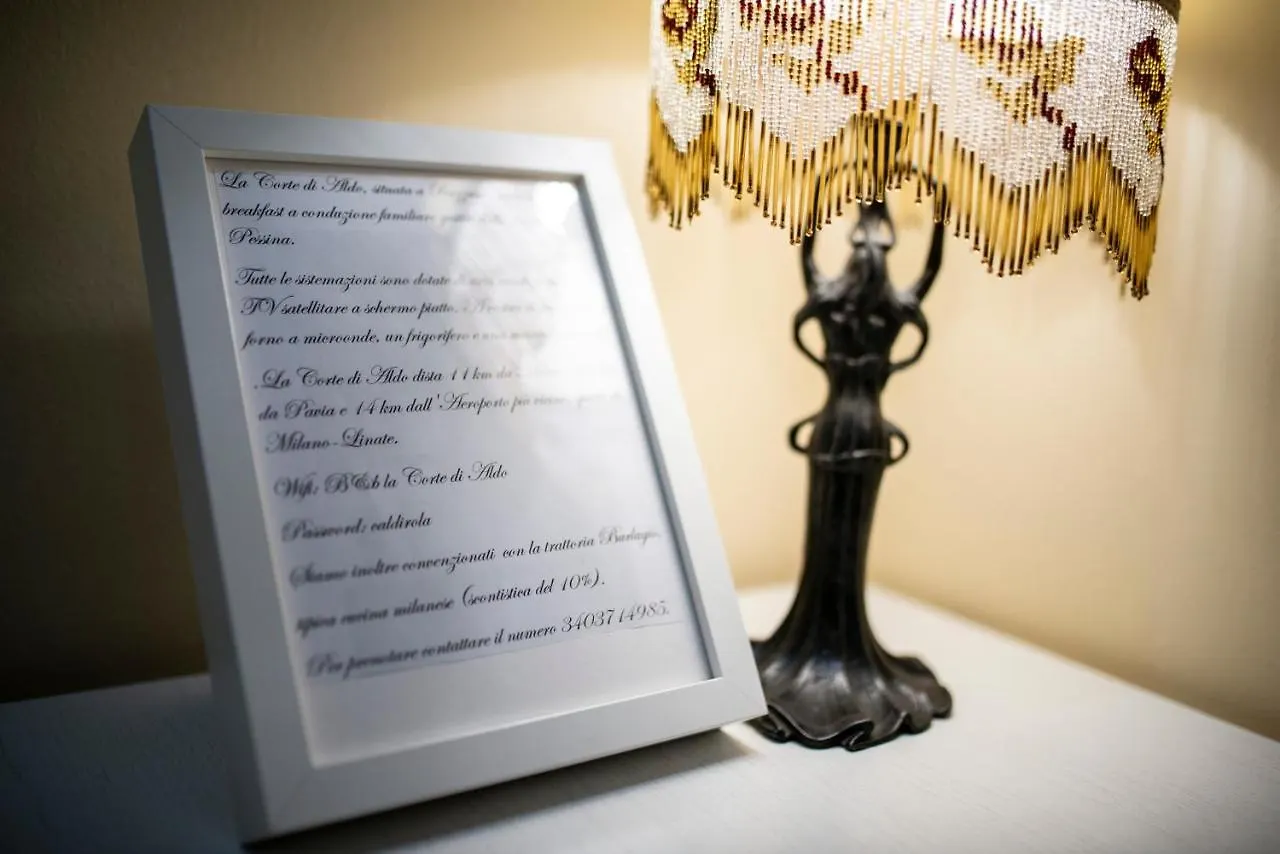 La Corte di Aldo, situata a
breakfast a conduzione familiare
Pessina.
Tutte le sistemazioni sono dotate
TV satellitare a schermo piatto.
forno a microonde, un frigorifero e
. La Corte di Aldo dista 11 km da
da Pavia e 14 km dall'Aeroporto più
Milano-Linate.
Wifi: B&b la Corte di Aldo
Password: caldirola
Siamo inoltre convenzionati con la trattoria
tipica cucina milanese (scontistica del 10%).
Per prenotare contattare il numero 3403714985.